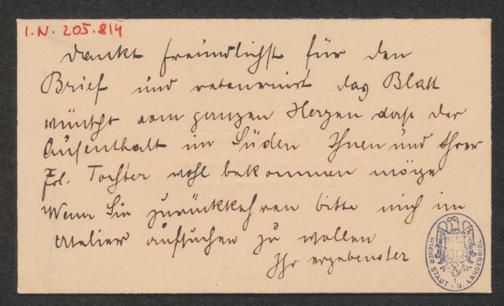 I.N. 205.814
dankt freundlichst für den
Brief und retourniert das Blatt
wünscht vom ganzen Herzen dass der
Aufenthalt im Süden Ihnen und Ihrer
Frl. Tochter wohl bekommen möge
Wenn Sie zurückkehren bitte mich im
Atelier aufsuchen zu wollen
Ihr ergebenster
WIENER STADT- U. LANDESBIBL.